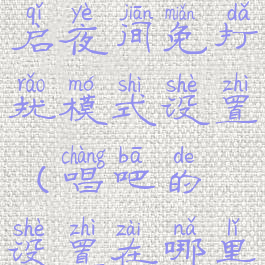 qǐ yè jiān miǎn dǎ
启夜间免打
rǎo mó shì shè zhì
扰模式设置
chàng bā de
(唱吧的
shè zhì zài nǎ lǐ
设置在哪里